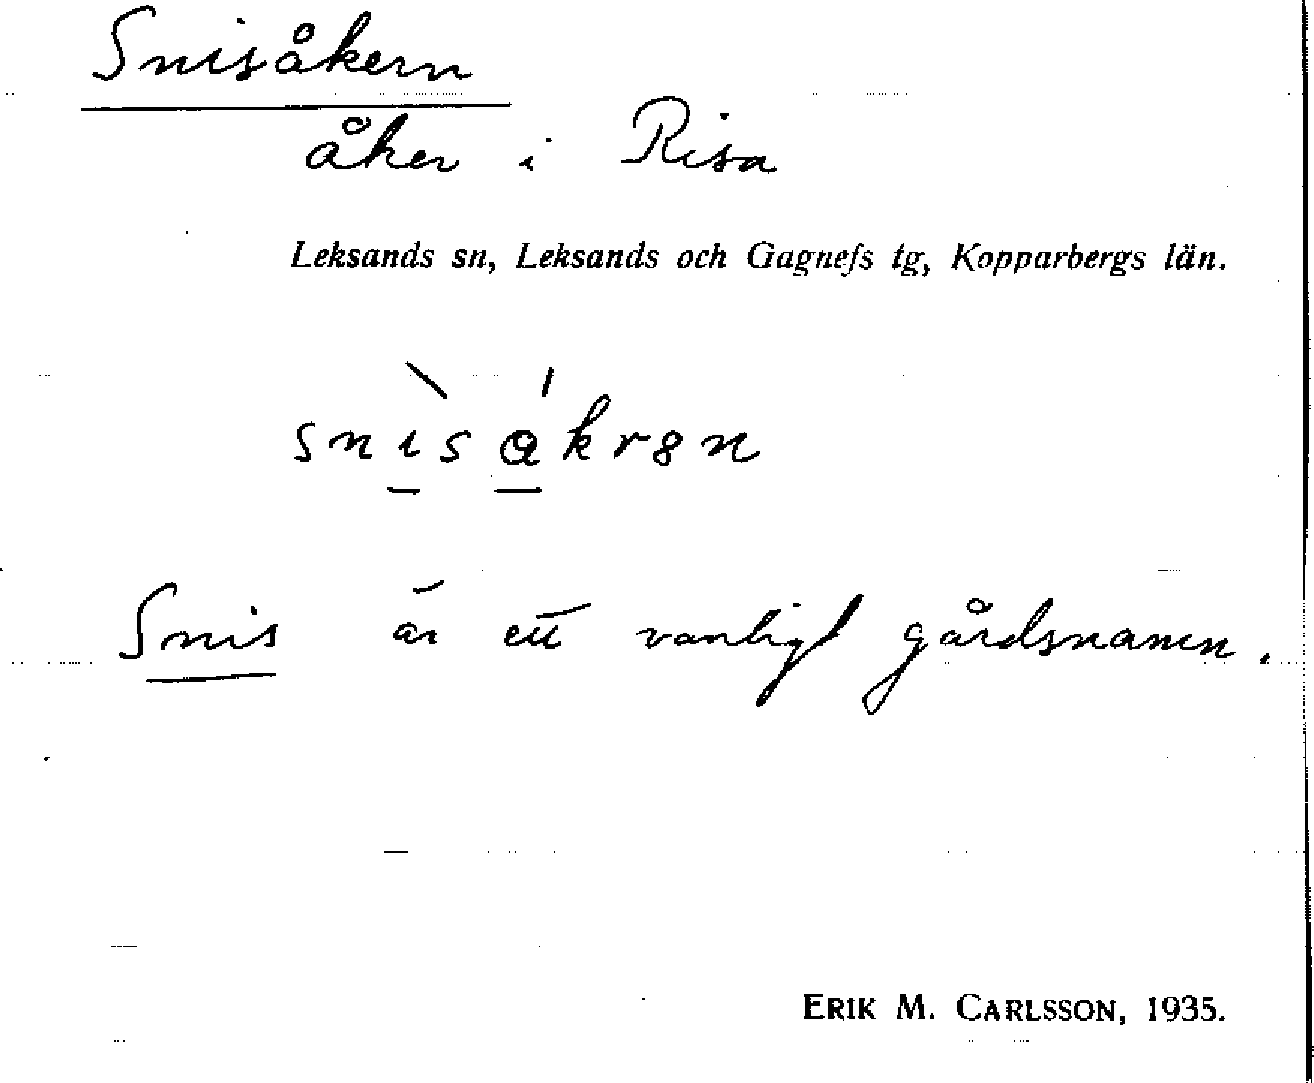 Snisåkern
åker i Risa
Leksands sn, Leksands och Gagnefs tg, Kopparbergs län.
Snis är ett vanligt gårdsnamn.
ERIK M. CARLSSON, 1935.